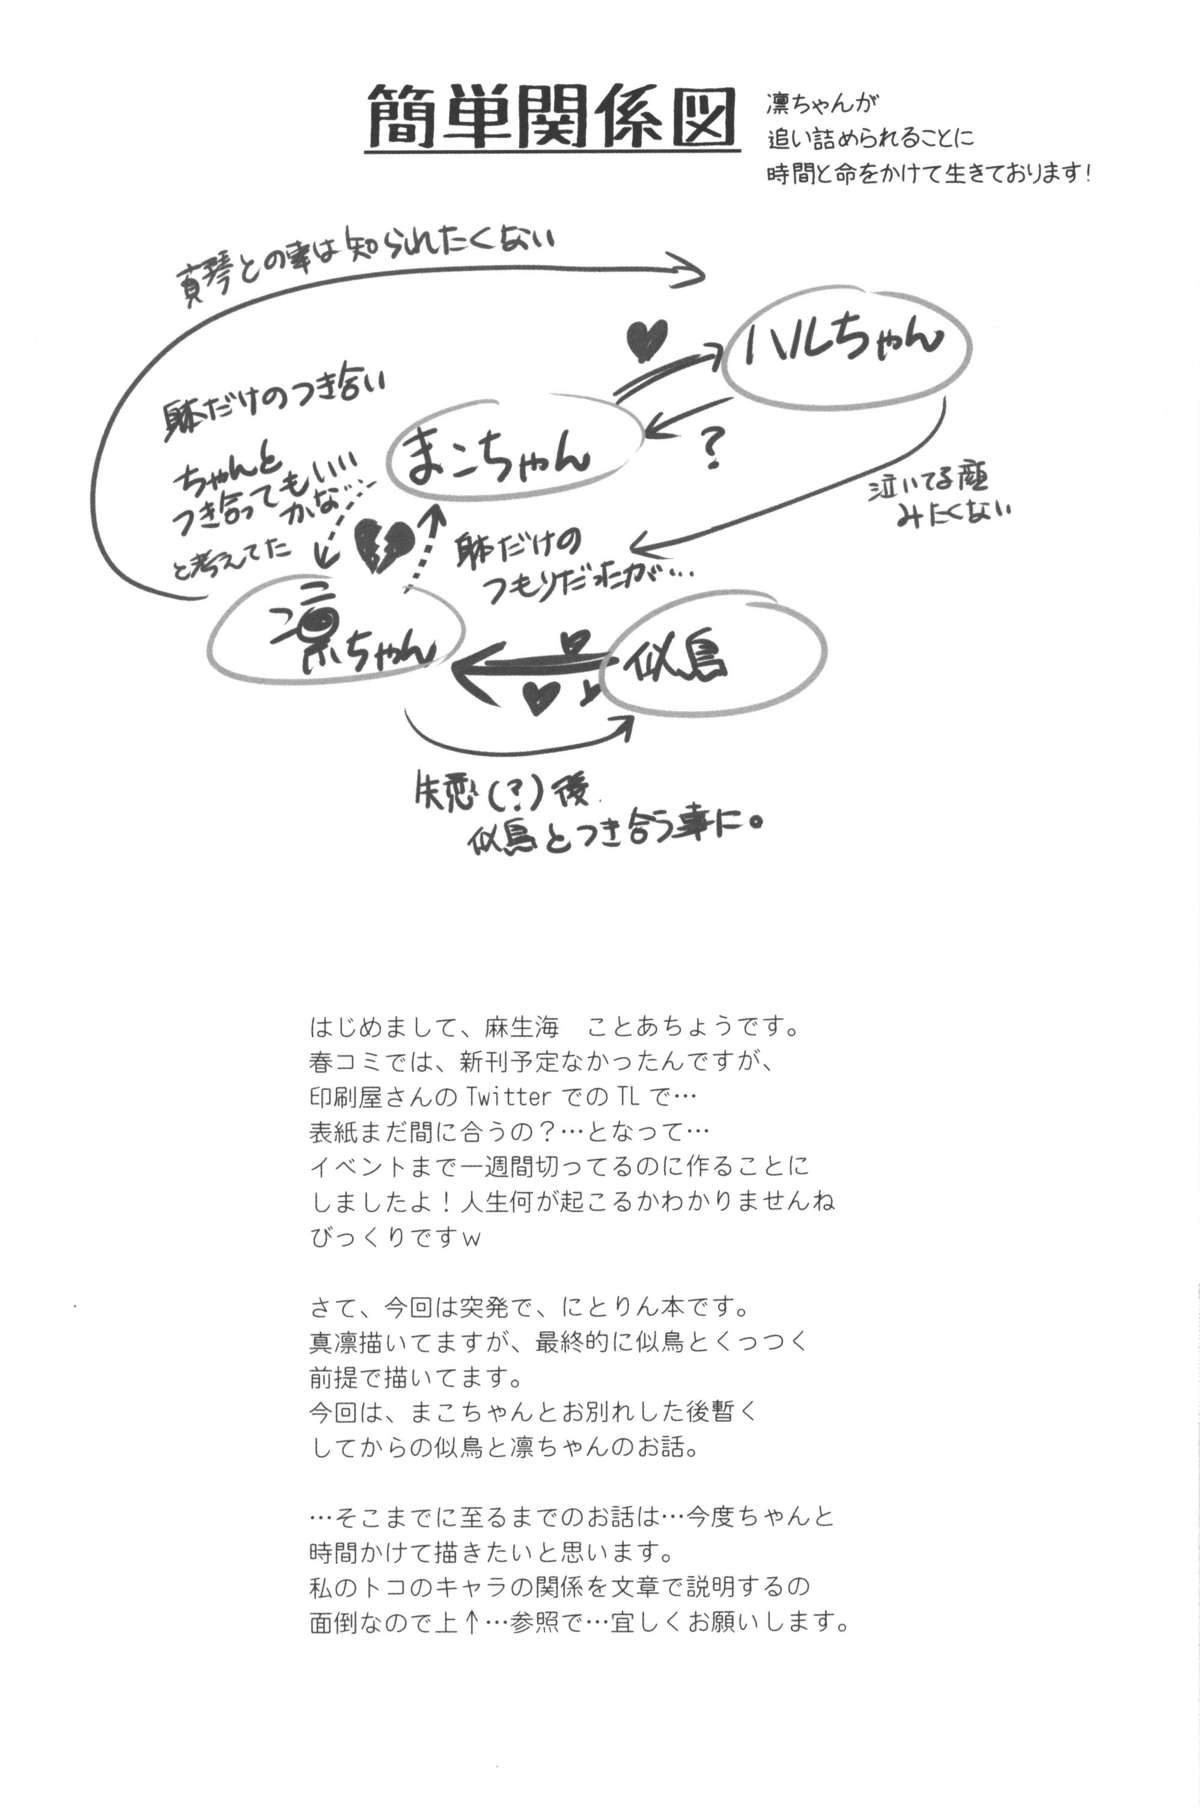 簡単関係図
凛ちゃんが
追い詰められることに
時間と命をかけて生きております！
真琴との事は知られたくない
ハルちゃん
躰だけのつき合い
まこちゃん
？
ちゃんと
つき合ってもいい
かな…
と考えてた
泣いてる顔
みたくない
躰だけの
つもりだったが…
凛ちゃん
似鳥
失恋(?)後
似鳥とつき合う事に。
はじめまして、麻生海　ことあちょうです。
春コミでは、新刊予定なかったんですが、
印刷屋さんの Twitter での TL で…
表紙まだ間に合うの？…となって…
イベントまで一週間切ってるのに作ることに
しましたよ！人生何が起こるかわかりませんね
びっくりですｗ
さて、今回は突発で、にとりん本です。
真凛描いてますが、最終的に似鳥とくっつく
前提で描いてます。
今回は、まこちゃんとお別れした後暫く
してからの似鳥と凛ちゃんのお話。
…そこまでに至るまでのお話は…今度ちゃんと
時間かけて描きたいと思います。
私のトコのキャラの関係を文章で説明するの
面倒なので上↑…参照で…宜しくお願いします。